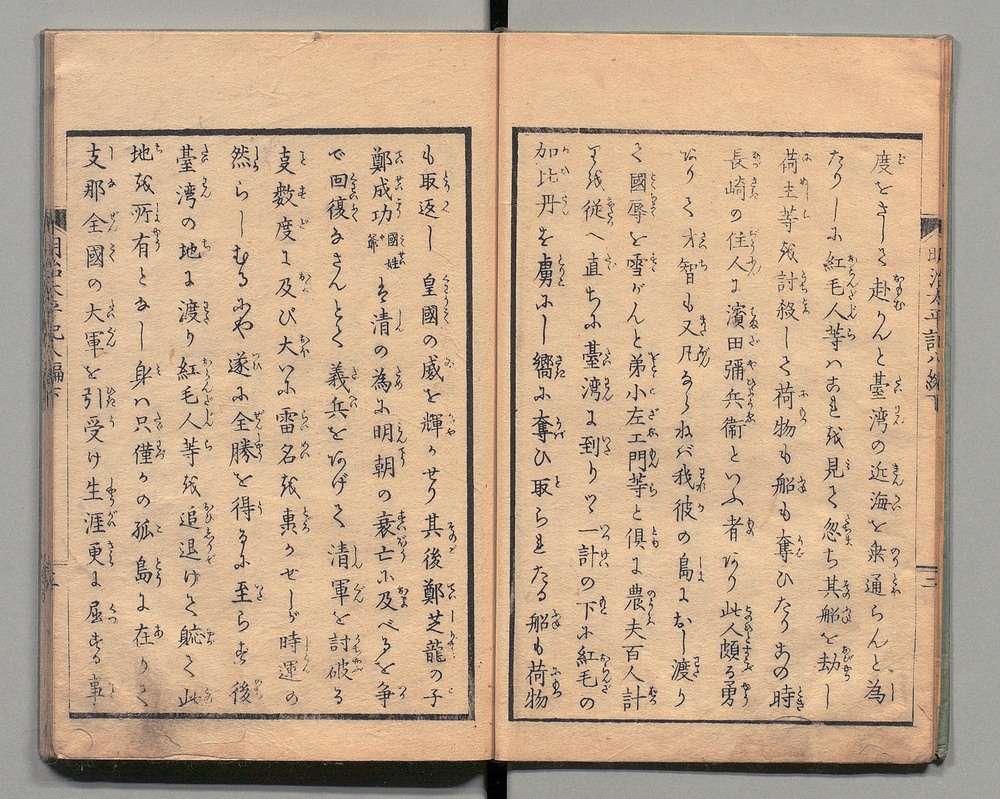 度をさして赴かんと臺湾の近海を乗通らんと為
たりしに紅毛人等はこれを見て忽ち其船を劫し
荷主等を討殺して荷物も船も奪ひたりこの時
長崎の住人に濱田彌兵衛といふ者あり此人頗る勇
ありて才智も又凡ならねば我彼の島におし渡り
て國辱を雪がんと弟小左エ門等と倶に農夫百人計
りを従へ直ちに臺湾に到りつ一計の下に紅毛の
加比丹を虜にし嚮に奪ひ取られたる船も荷物
も取返し 皇國の威を輝かせり其後鄭芝龍の子
鄭成功國姓爺は清の為に明朝の衰亡に及べるを争
で回復なさんとて義兵をあげて清軍を討破る
事数度に及び大いに雷名を轟かせしが時運の
然らしむるにや遂に全勝を得るに至らず後
臺湾の地に渡り紅毛人等を追退けて躬て此
地を所有となし身は只僅かの孤島に在りて
支那全國の大軍を引受け生涯更に屈する事
明治太平記八編下
三
明治太平記八編下